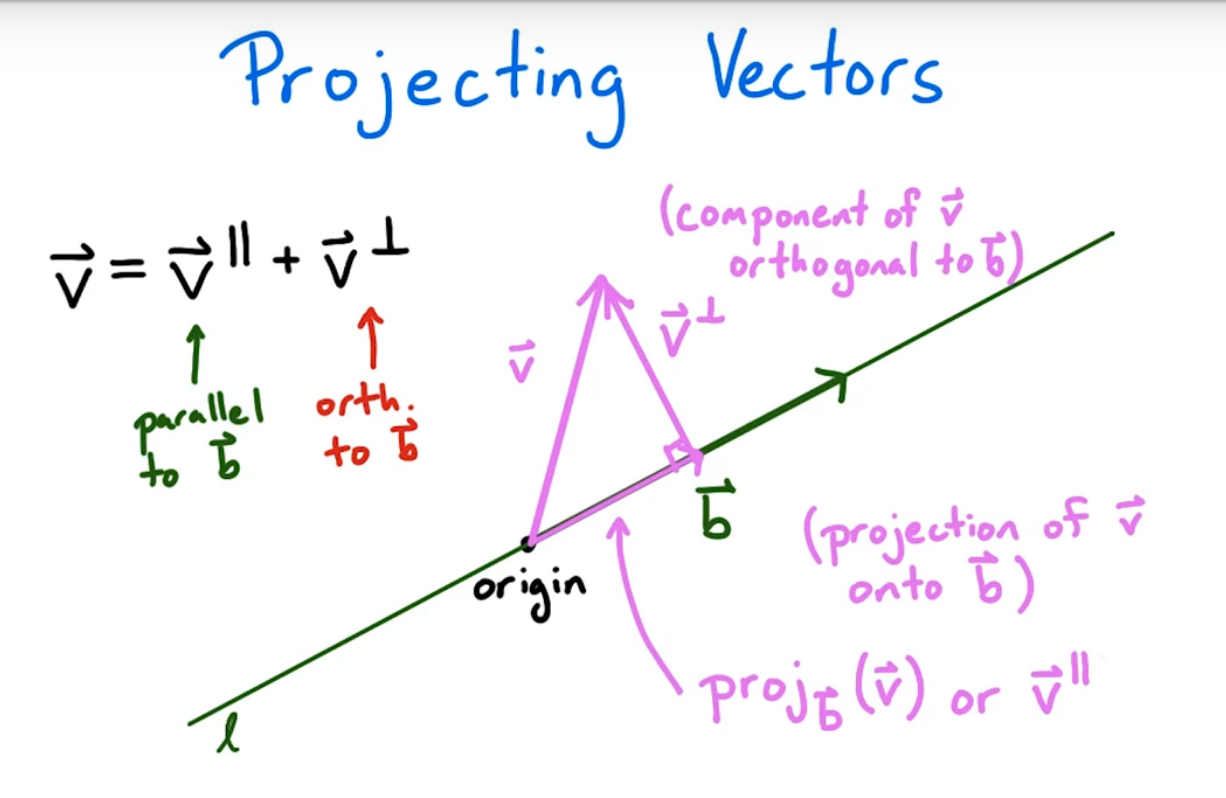 Projecting Vectors
v⃗ = v⃗ ∥ + v⃗ ⊥
parallel
to b⃗
orth.
to b⃗
(component of v⃗
orthogonal to b⃗)
v⃗
v⃗ ⊥
b⃗
origin
(projection of v⃗
onto b⃗)
proj b⃗ (v⃗) or v⃗ ∥
l